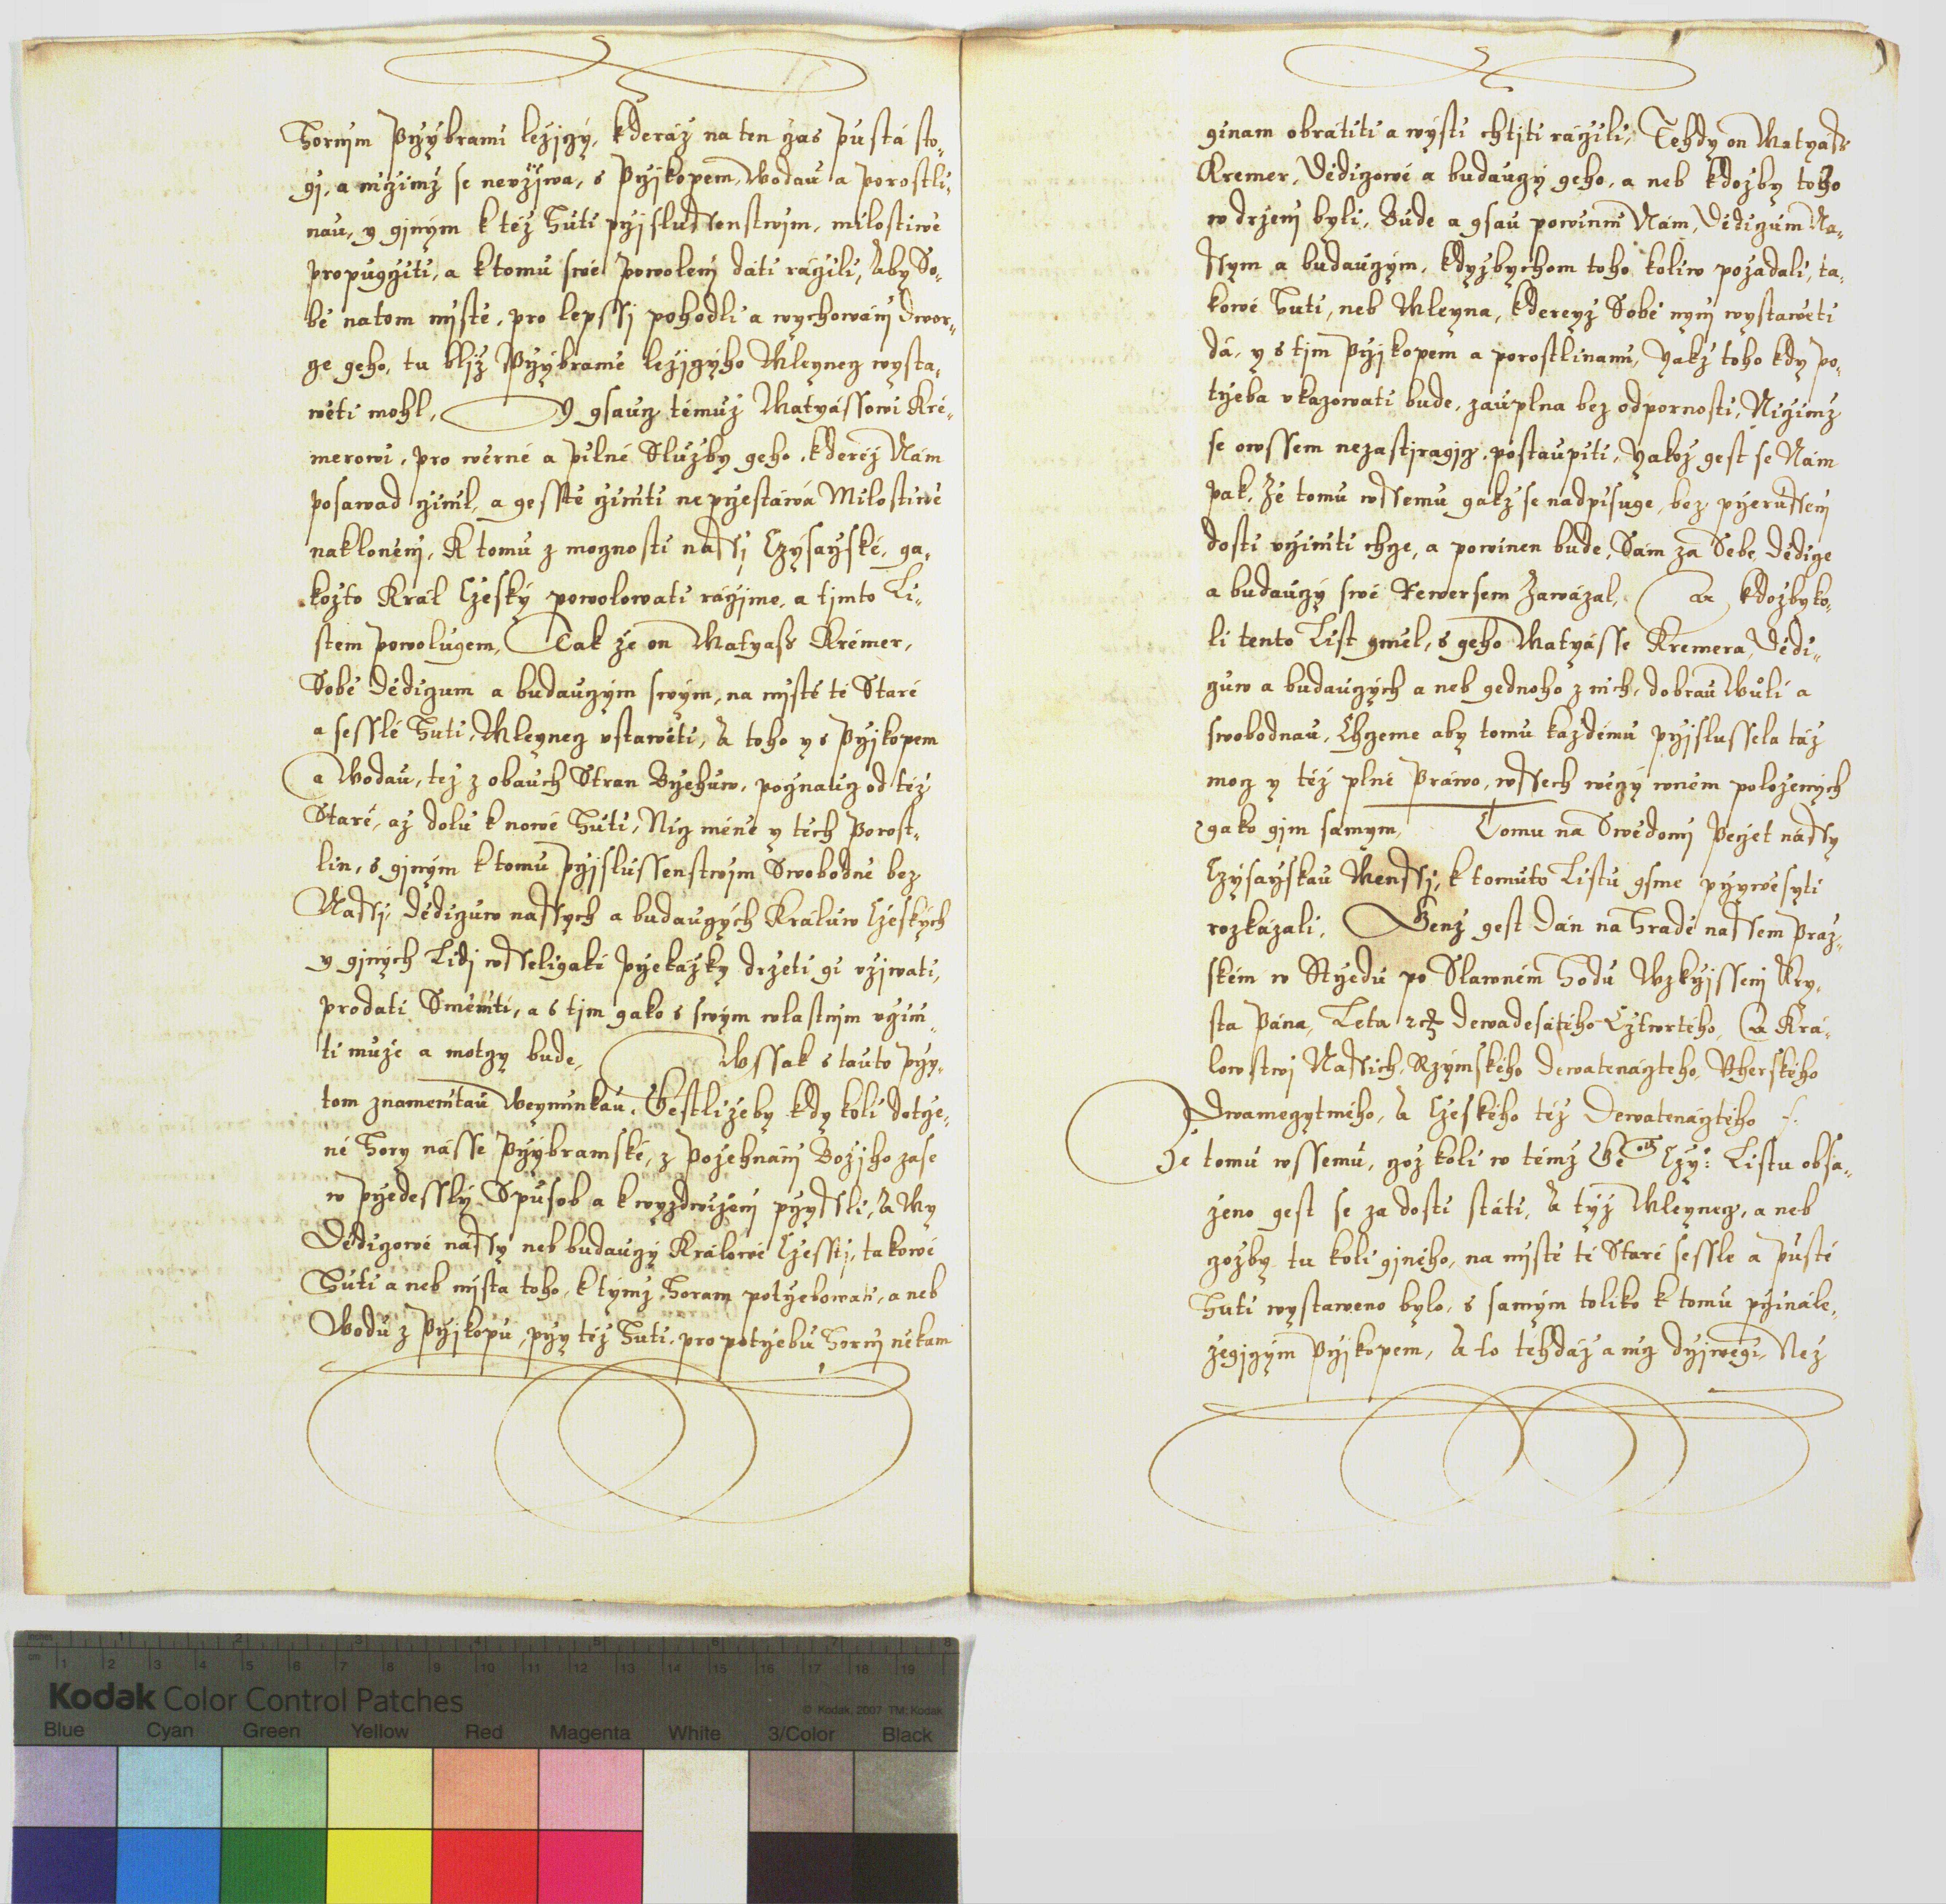 Hornjm Przybrami ležiczy, kderáž na ten czas pustá sto-
gj, a niczimž se nevžjwa, s Przjkopem, Wodau a porostli-
nau, y gjným k též Huti przjslussenstwjm, milostiwě
propugčiti, a k tomu své powolenj dáti ráczili, Aby So-
bě natom mjstě, pro lepssj pohodlí a wychowánj dwor-
ze geho, tu bljž Przybramě ležjczyho Mleynecz wysta-
wěti mohl, Y gsaucz témuž Matyássowi Kré-
merowi, pro wěrné a pilné Služby geho, kderéž Nám
posawad činil, a gesstě činiti neprzestáwá Milostiwě
nakloněni, K tomu z mocznosti nassj Czýsařské, ga-
kožto Král Czeský powolowati ráczjme, a tjmto Li-
stem powolugem, Tak že on Matyass Krémer,
Sobě Dědiczum a budauczým swým, na mjstě té Staré
a sesslé Huti, Mleynecz ustawěti, A toho y s Przjkopem
a Wodau, též z obauch Stran Brzehuw, počnaucz od též
Staré, až dolu k nowé Huti, Nicz méně y těch Porost-
lin, s gjným k tomu przjslussenstwjm Swobodně bez
Nassj, Dědiczuw nassych a budauczých Králuw Czeských
y gjných Lidj wsseligaké przekážky držeti gi užjwati,
prodati Směniti, a s tjm gako s swým wlastnjm učini-
ti může a moczy bude, Wssak s tauto przy-
tom znamenitau Weyminkau, Gestližeby kdy koli dotcze-
né Hory násse Przybramské, z požehnánj Božjho zase
w przedesslý Spusob a k wyzdwiženj przissli, A My
Dědiczowé nassy neb budauczý Králowé Czesstj, takowé
Huti a neb mjsta toho, k týmž Horam potrzebowati, a neb
Wodu z Przjkopu, przy též Huti, pro potrzebu Hornj někam
ginam obrátiti a wýsti chtjti ráczili, Tehdy on Matyáss
Kremer, Dědiczowé a budauczý geho, a neb kdožby toho
w drženj byli, Bude a gsau powinni Nám, Dědiczum Na-
ssym a budauczým, kdyžbychom toho koliw požádali, ta-
kowé Huti, neb Mleyna, kdereyž Sobě nynj wystawěti
dá, y s tjm Przjkopem a porostlinami, yakž toho kdy po-
trzeba ukazowati bude, zauplna bez odpornosti, Niczimž
se owssem nezastjragjcz, postaupiti, Yakož gest se Nám
pak, že tomu wssemu gakž se nadpisuge, bez przerussenj
dosti učiniti chcze, a powinen bude, Sám za Sebe, Dědicze
a budauczý swé Rewersem Zawázal, A kdožbyko-
li tento List gměl, s geho Matyásse Kremera, Dědi-
czuw a budauczých a neb gednoho z nich, dobrau Wuli a
swobodnau, Chczeme aby tomu každému przjslussela táž
mocz y též plné Práwo, wssech wěczý wněm položených
gako gjm samým, Tomu na Swědomj Peczet nassy
Czýsařskau Menssj, k tomuto Listu gsme przywěsyti
rozkázali, Genž gest Dán na Hradě nassem Praž-
ském w Strzedu po Slawném Hodu Wzkrzjssenj Kry-
sta Pána, Leta etc dewadesátého Cžtwrtého, A Krá-
lowstwj Nassich, Rzýmského Dewatenáctého, Uherského
Dwamegtcýtmého, A Czeského též Dewatenácztého
Že tomu wssemu, což koli w témž Gé: Czý: Listu obsa-
ženo gest se za dosti státi, A týž Mleynecz, a neb
czožby tu koli gjného, na mjstě té Staré sesslé a pusté
Huti wystaweno bylo, s samým toliko k tomu przinále-
žegjczým Przjkopem, A to tehdáž a nicz dřjwegi, Než